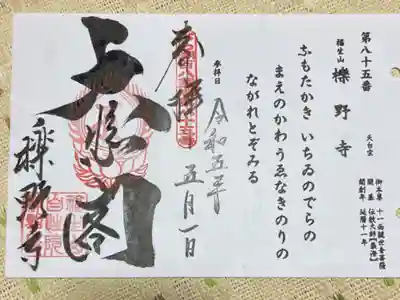 第八十五番
福生山
櫟野寺
天台宗
御本尊 十一面観世音菩薩
開基 伝教大師【最澄】
開創年 延暦十一年
ふもたかき いちゐのでらの
まえのかわ うゑなきのりの
ながれとぞみる
参拝日
令和五年
五月一日
奉拝
大悲閣
櫟野寺